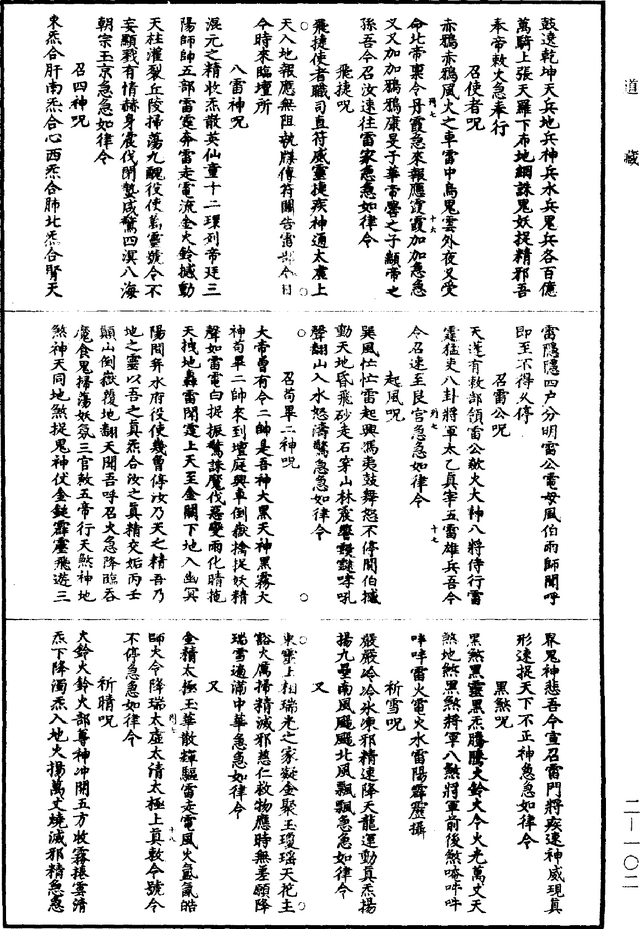 道藏
鼓遶乾坤天兵地兵神兵水兵鬼兵各百億
萬騎上張天羅下布地網誅鬼妖捉精邪吾
奉帝敕火急奉行
召使者呪
赤鴉赤鴉風火之車雷中烏鬼雲外夜叉受
命北帝稟令丹霞急來報應霞霞加加急急
叉叉加加鴉鴉康旻子華帝嚳之子顓帝之
孫吾今召汝速往雷家急急如律令
飛捷呪
飛捷使者職司直符威靈捷疾神通太虛上
天入地報應無阻執牒傳符關告雷部今日
今時來臨壇所
八雷神呪
混元之精收炁散英仙童十二環列帝廷三
陽師帥五部雷霆奔雷走電流金火鈴撼動
天柱灌裂丘陵掃蕩九醜役使萬靈號令不
妄顯戮有情赫身震伐閉蟄咸驚四溟八海
朝宗玉京急急如律令
召四神呪
東炁合肝南炁合心西炁合肺北炁合腎天
雷隱隱四户分明雷公電母風伯雨師聞呼
即至不得久停
召雷公呪
天蓬有敕部領雷公欻火大神八將侍行雷
霆猛吏八卦將軍太乙真宰五雷雄兵吾今
令召速至艮宮急急如律令
起風呪
巽風忙忙雷起興馮夷鼓舞怒不停閞伯撼
動天地昏飛砂走石穿山林震響靉靆哮吼
聲翻山入水怒濤驚急急如律令
召苟畢二神呪
大帝曾有令二帥是吾神大黑天神黑霧火
神苟畢二帥來到壇庭興車倒嶽擒捉妖精
聲如雷電白捉振驚誅魔伐惡變雨化晴拖
天拽地轟雷閃霆上天至金闕下地入幽冥
陽間奔水府役使幾曾停汝乃天之精吾乃
地之靈以吾之真炁合汝之真精交姤丙壬
顛山倒嶽覆地翻天聞吾呼召火急降臨吞
魔食鬼掃蕩妖氛三官敕五帝行天煞神地
煞神天同地煞捉鬼神伏金鎚霹靂飛遊三
界鬼神悲吾今宣召雷門將疾速神威現真
形速捉天下不正神急急如律令
黑煞呪
黑煞黑靈黑炁騰騰火鈴火令火光萬丈天
煞地煞黑煞將軍八煞將軍前後煞唵吽吽
吽吽雷火雷火水雷陽霹靂攝
祈雪呪
嚴嚴冷冷氷凍邪精速降天龍運動真炁揚
揚九壘南風颸颸北風飄飄急急如律令
又
東靈上相瑞光之家凝金聚玉瓊瑶天花主
谿火厲掃精滅邪慈仁救物應時無差願降
瑞雪遍滿中華急急如律令
又
金精太極玉華散輝驅雷走電風火氤氳皓
師火令降瑞太虛太清太極上真敕令號令
不停急急如律令
祈晴呪
火鈴火鈴火部尊神冲開五方收霧捲雲清
炁下降濁炁入地火揚萬丈燒滅邪精急急
二—一〇二